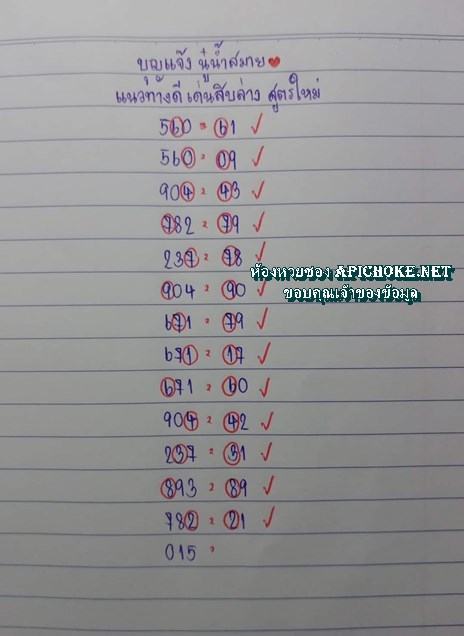 บุญแจ้ง นู๋น้ำสมาย
แนวทางดี เด่นสิบล่าง สูตรใหม่
560 = 61 ✓
560 = 09 ✓
904 = 43 ✓
782 = 79 ✓
237 = 78 ✓
904 = 90 ✓
671 = 79 ✓
671 = 17 ✓
671 = 60 ✓
904 = 42 ✓
237 = 31 ✓
893 = 89 ✓
782 = 21 ✓
015 =
ห้องหวยซอง APICHOKE.NET
ขอบคุณเจ้าของข้อมูล